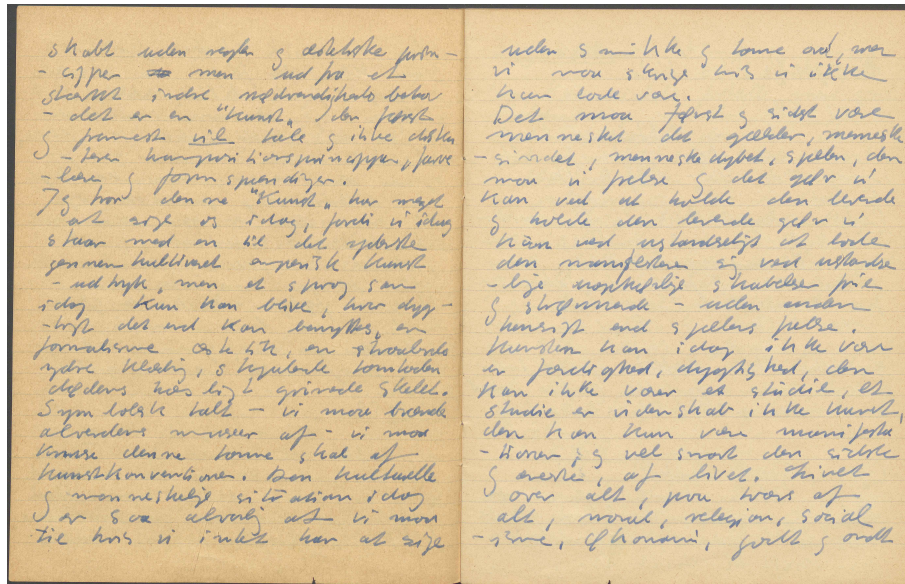 skabt uden regler og æstetiske prin-
-cipper men ud fra et
stærkt indre nødvendigheds behov
- det er en "Kunst" der først
og fremmest vil tale og ikke
kompositionsprincipper, farve
-lære og formspændinger.
Jeg tror denne "Kunst" har meget
at sige os idag, fordi vi idag
staar med en til det yderste
gennem kultiveret europæisk kunst
-udtryk, men et sprog som
idag kun kan blive, hvor dyg-
-tigt det end kan benyttes, en
formalisme æstetik, en straalende
ydre klædning, skjulende tomheden
dødens hæsligt grinende skelet.
Symbolsk talt - vi maa brænde
alverdens museer af - vi maa
knuse denne tomme skal af
kunstkonventioner. Den kulturelle
og menneskelige situation idag
er saa alvorlig at vi maa
tie hvis vi intet har at sige
uden sminke og tomme ord, men
vi maa skrige hvis vi ikke
kan lade være.
Det maa først og sidst være
mennesket det gælder, menneske
-sindet, menneskedybet, sjælen, den
maa vi frelse og det gør vi
kun ved at holde den levende
og holde den levende gør vi
kun ved ustandseligt at lade
den manifestere sig ved ustandse
-lige uophørlige skabelser frie
og strømmende - uden anden
hensigt end sjælens frelse.
Kunsten kan idag ikke være
er færdighed, dygtighed, den
kan ikke være et studie, et
studie er videnskab ikke kunst,
den kan kun være manifesta
-tioner, og vel snart den sidste
og eneste, af livet. Livet
over alt, paa tværs af
alt, moral, religion, social
-isme, økonomi, godt og ondt